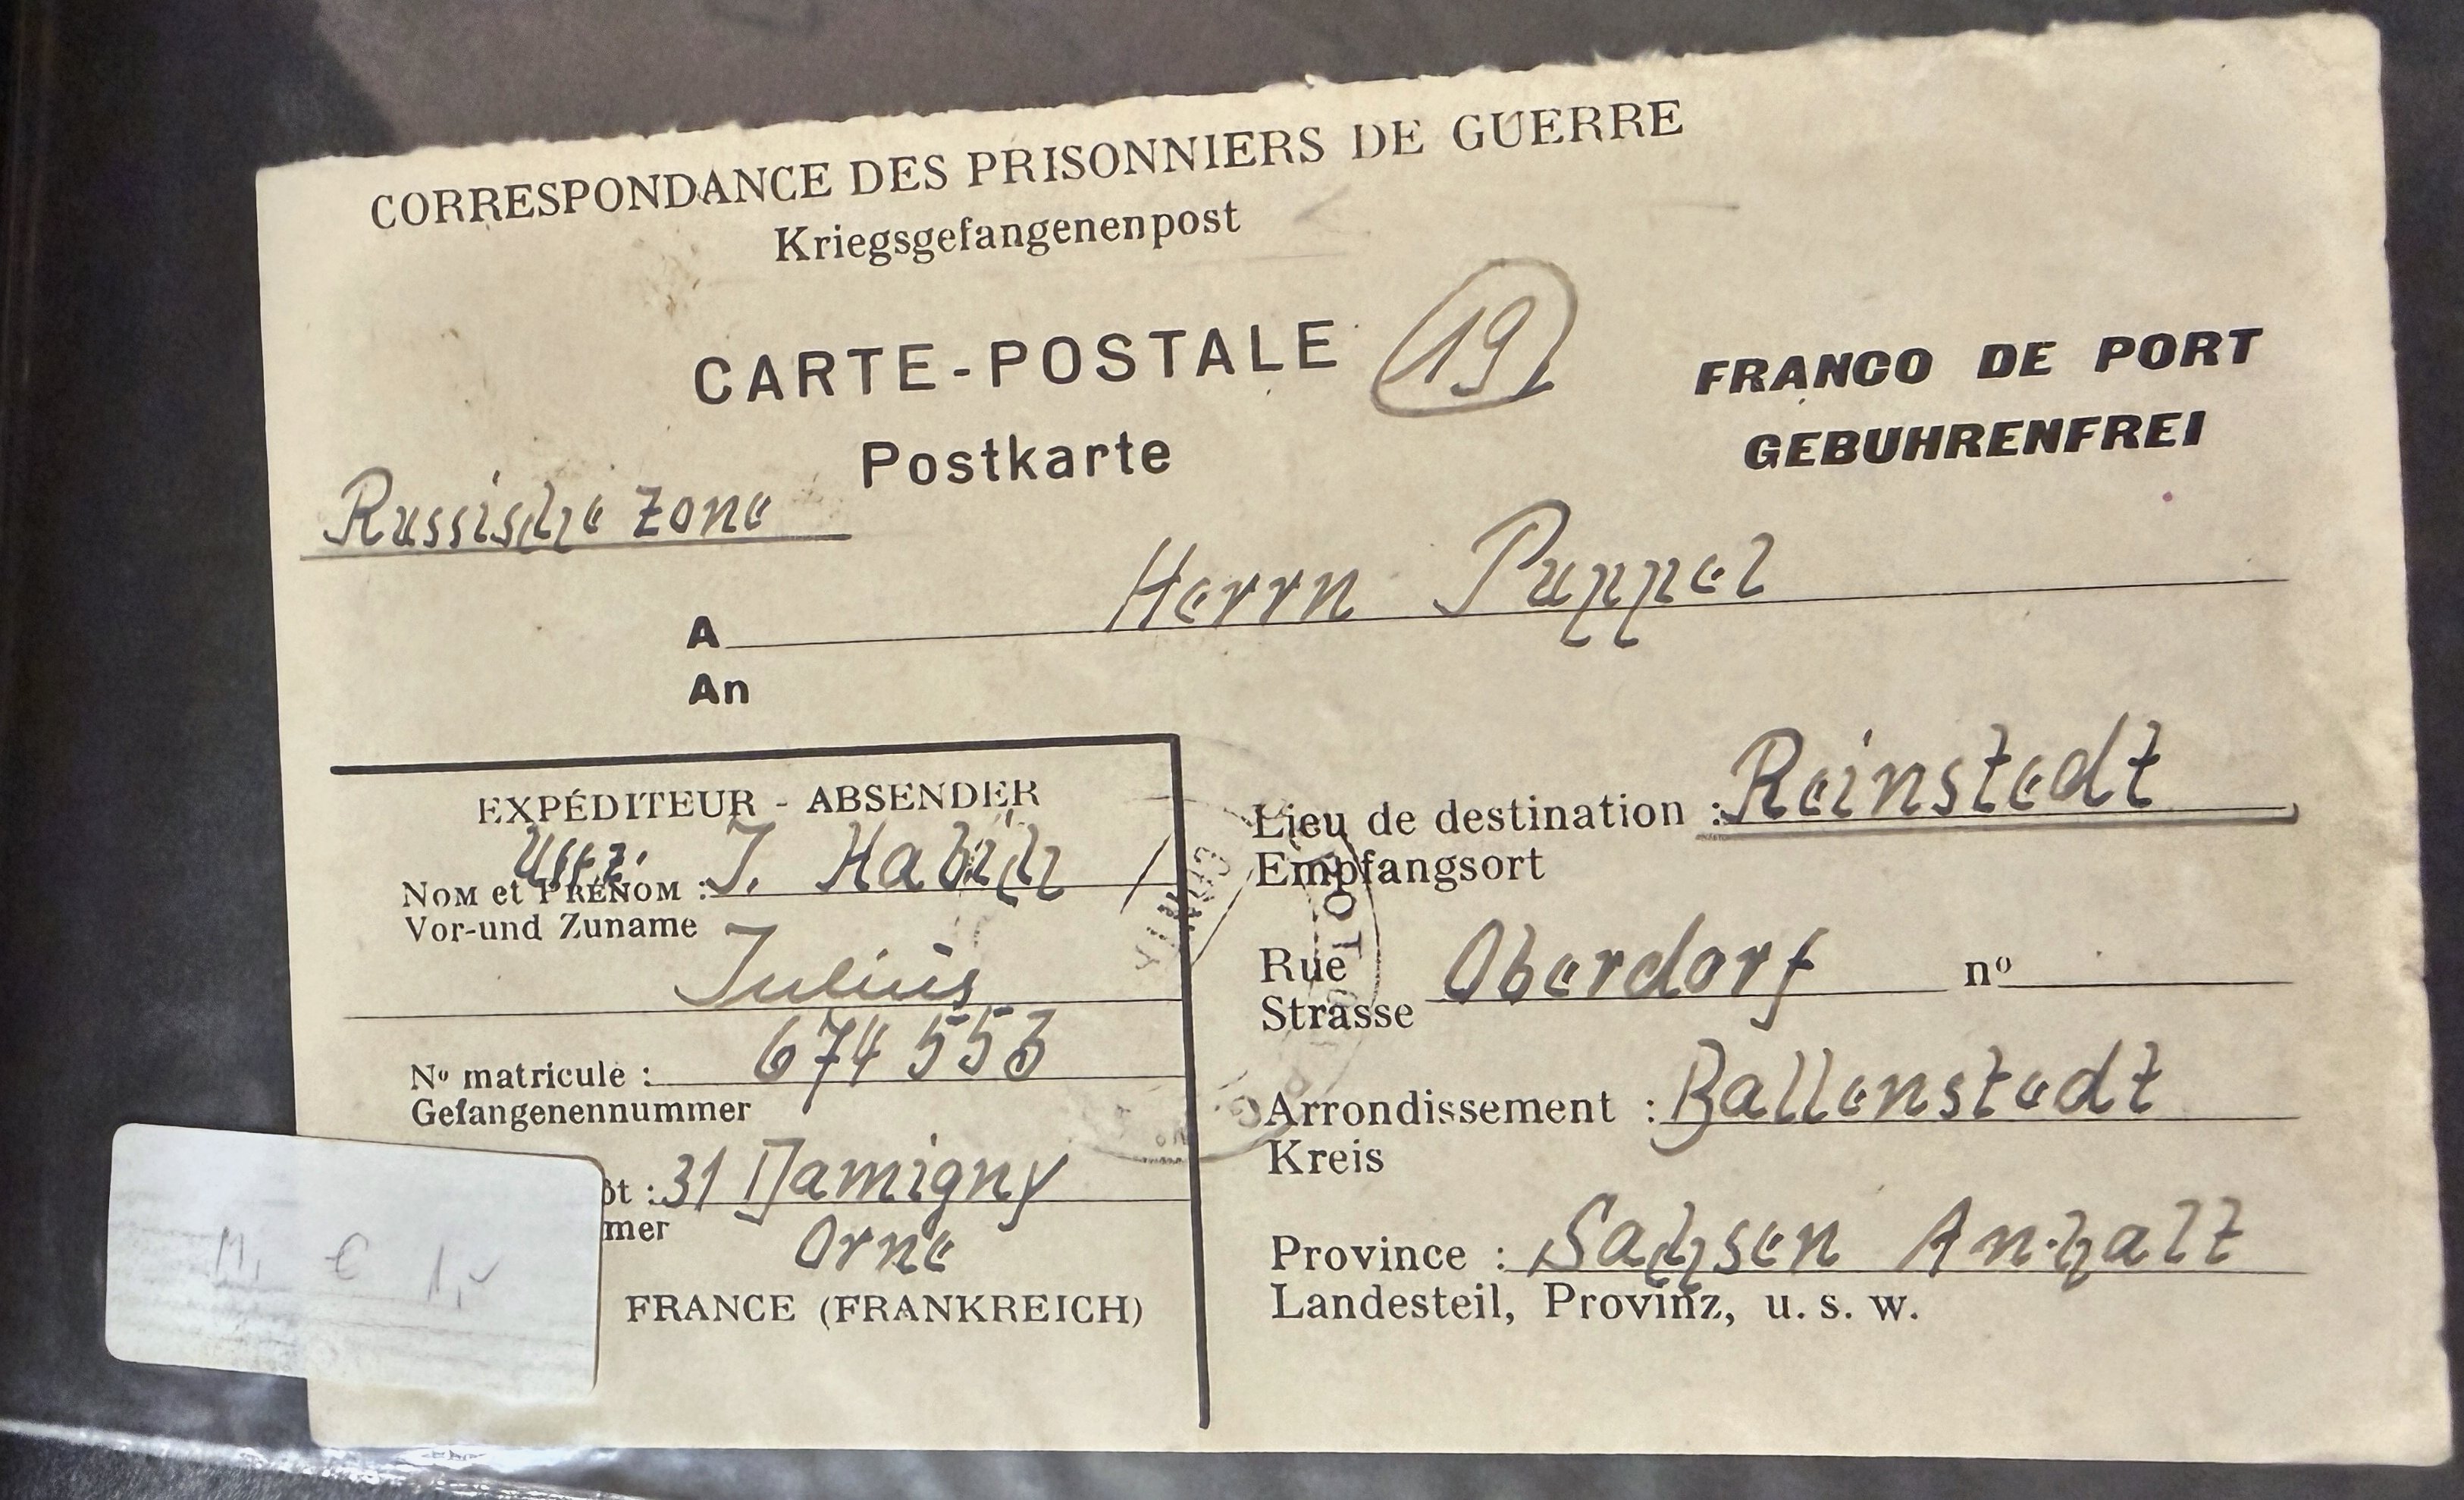 CORRESPONDANCE DES PRISONNIERS DE GUERRE
Kriegsgefangenenpost
CARTE-POSTALE
19
Postkarte
FRANCO DE PORT
GEBUHRENFREI
Russische Zone
A Herrn Puppel
An
EXPÉDITEUR - ABSENDER
Uffz. J. Habich
NOM et PRÉNOM :
Vor-und Zuname
Julius
Nº matricule : 674 553
Gefangenennummer
ôt : 31 Damigny
mer
Orne
FRANCE (FRANKREICH)
Lieu de destination : Reinstedt
Empfangsort
Rue Oberdorf nº
Strasse
Arrondissement : Ballenstedt
Kreis
Province : Sachsen Anhalt
Landesteil, Provinz, u. s. w.
€ 1,-